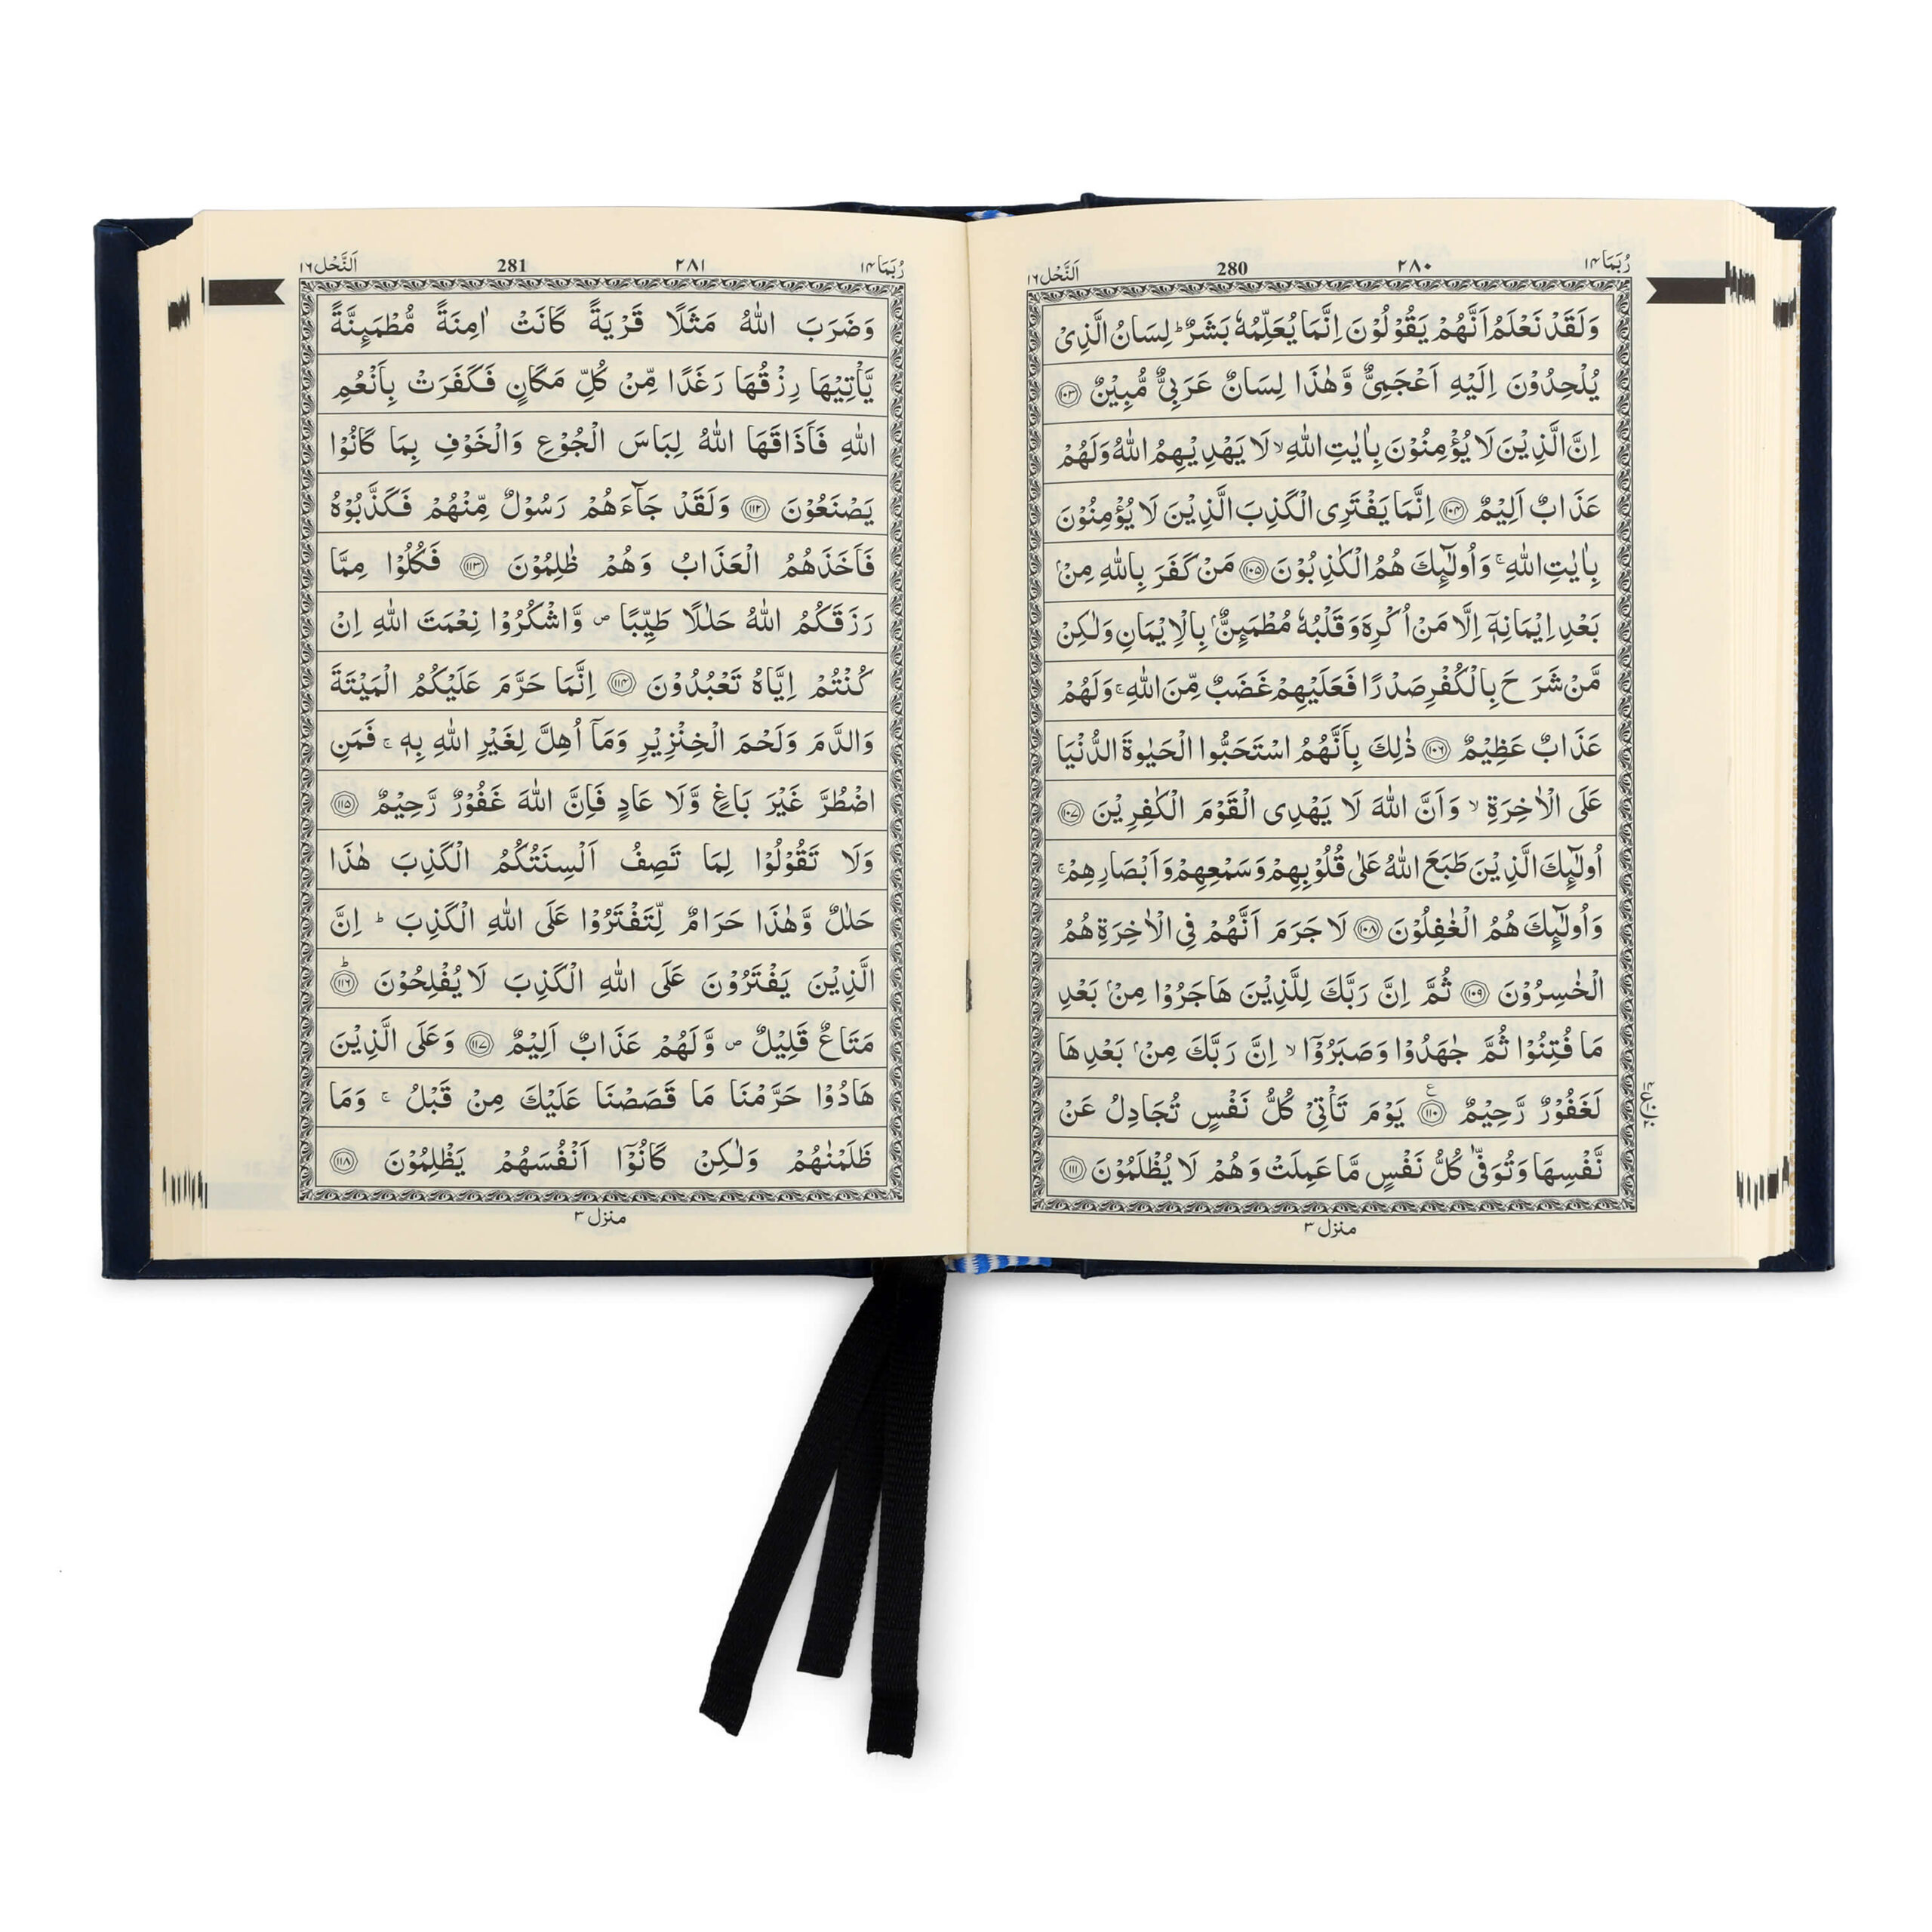 رُبَمَا ۱۴ ۲۸۰ 280 اَلنَّحْل ۱۶
وَلَقَدْ نَعْلَمُ اَنَّهُمْ يَقُوْلُوْنَ اِنَّمَا يُعَلِّمُهٗ بَشَرٌ ؕ لِسَانُ الَّذِىْ
يُلْحِدُوْنَ اِلَيْهِ اَعْجَمِىٌّ وَّهٰذَا لِسَانٌ عَرَبِىٌّ مُّبِيْنٌ ۝۱۰۳
اِنَّ الَّذِيْنَ لَا يُؤْمِنُوْنَ بِاٰيٰتِ اللّٰهِ ۙ لَا يَهْدِيْهِمُ اللّٰهُ وَلَهُمْ
عَذَابٌ اَلِيْمٌ ۝۱۰۴ اِنَّمَا يَفْتَرِى الْكَذِبَ الَّذِيْنَ لَا يُؤْمِنُوْنَ
بِاٰيٰتِ اللّٰهِ ۚ وَاُولٰٓئِكَ هُمُ الْكٰذِبُوْنَ ۝۱۰۵ مَنْ كَفَرَ بِاللّٰهِ مِنْۢ
بَعْدِ اِيْمَانِهٖۤ اِلَّا مَنْ اُكْرِهَ وَقَلْبُهٗ مُطْمَئِنٌّۢ بِالْاِيْمَانِ وَلٰكِنْ
مَّنْ شَرَحَ بِالْكُفْرِ صَدْرًا فَعَلَيْهِمْ غَضَبٌ مِّنَ اللّٰهِ ۚ وَلَهُمْ
عَذَابٌ عَظِيْمٌ ۝۱۰۶ ذٰلِكَ بِاَنَّهُمُ اسْتَحَبُّوا الْحَيٰوةَ الدُّنْيَا
عَلَى الْاٰخِرَةِ ۙ وَاَنَّ اللّٰهَ لَا يَهْدِى الْقَوْمَ الْكٰفِرِيْنَ ۝۱۰۷
اُولٰٓئِكَ الَّذِيْنَ طَبَعَ اللّٰهُ عَلٰى قُلُوْبِهِمْ وَسَمْعِهِمْ وَاَبْصَارِهِمْ ۚ
وَاُولٰٓئِكَ هُمُ الْغٰفِلُوْنَ ۝۱۰۸ لَا جَرَمَ اَنَّهُمْ فِى الْاٰخِرَةِ هُمُ
الْخٰسِرُوْنَ ۝۱۰۹ ثُمَّ اِنَّ رَبَّكَ لِلَّذِيْنَ هَاجَرُوْا مِنْۢ بَعْدِ
مَا فُتِنُوْا ثُمَّ جٰهَدُوْا وَصَبَرُوْۤا ۙ اِنَّ رَبَّكَ مِنْۢ بَعْدِهَا
لَغَفُوْرٌ رَّحِيْمٌ ۝۱۱۰ يَوْمَ تَاْتِىْ كُلُّ نَفْسٍ تُجَادِلُ عَنْ
نَّفْسِهَا وَتُوَفّٰى كُلُّ نَفْسٍ مَّا عَمِلَتْ وَهُمْ لَا يُظْلَمُوْنَ ۝۱۱۱
منزل ۳
رُبَمَا ۱۴ ۲۸۱ 281 اَلنَّحْل ۱۶
وَضَرَبَ اللّٰهُ مَثَلًا قَرْيَةً كَانَتْ اٰمِنَةً مُّطْمَئِنَّةً
يَّاْتِيْهَا رِزْقُهَا رَغَدًا مِّنْ كُلِّ مَكَانٍ فَكَفَرَتْ بِاَنْعُمِ
اللّٰهِ فَاَذَاقَهَا اللّٰهُ لِبَاسَ الْجُوْعِ وَالْخَوْفِ بِمَا كَانُوْا
يَصْنَعُوْنَ ۝۱۱۲ وَلَقَدْ جَآءَهُمْ رَسُوْلٌ مِّنْهُمْ فَكَذَّبُوْهُ
فَاَخَذَهُمُ الْعَذَابُ وَهُمْ ظٰلِمُوْنَ ۝۱۱۳ فَكُلُوْا مِمَّا
رَزَقَكُمُ اللّٰهُ حَلٰلًا طَيِّبًا ۖ وَّاشْكُرُوْا نِعْمَتَ اللّٰهِ اِنْ
كُنْتُمْ اِيَّاهُ تَعْبُدُوْنَ ۝۱۱۴ اِنَّمَا حَرَّمَ عَلَيْكُمُ الْمَيْتَةَ
وَالدَّمَ وَلَحْمَ الْخِنْزِيْرِ وَمَاۤ اُهِلَّ لِغَيْرِ اللّٰهِ بِهٖ ۚ فَمَنِ
اضْطُرَّ غَيْرَ بَاغٍ وَّلَا عَادٍ فَاِنَّ اللّٰهَ غَفُوْرٌ رَّحِيْمٌ ۝۱۱۵
وَلَا تَقُوْلُوْا لِمَا تَصِفُ اَلْسِنَتُكُمُ الْكَذِبَ هٰذَا
حَلٰلٌ وَّهٰذَا حَرَامٌ لِّتَفْتَرُوْا عَلَى اللّٰهِ الْكَذِبَ ؕ اِنَّ
الَّذِيْنَ يَفْتَرُوْنَ عَلَى اللّٰهِ الْكَذِبَ لَا يُفْلِحُوْنَ ؕ۝۱۱۶
مَتَاعٌ قَلِيْلٌ ۖ وَّلَهُمْ عَذَابٌ اَلِيْمٌ ۝۱۱۷ وَعَلَى الَّذِيْنَ
هَادُوْا حَرَّمْنَا مَا قَصَصْنَا عَلَيْكَ مِنْ قَبْلُ ۚ وَمَا
ظَلَمْنٰهُمْ وَلٰكِنْ كَانُوْۤا اَنْفُسَهُمْ يَظْلِمُوْنَ ۝۱۱۸
منزل ۳